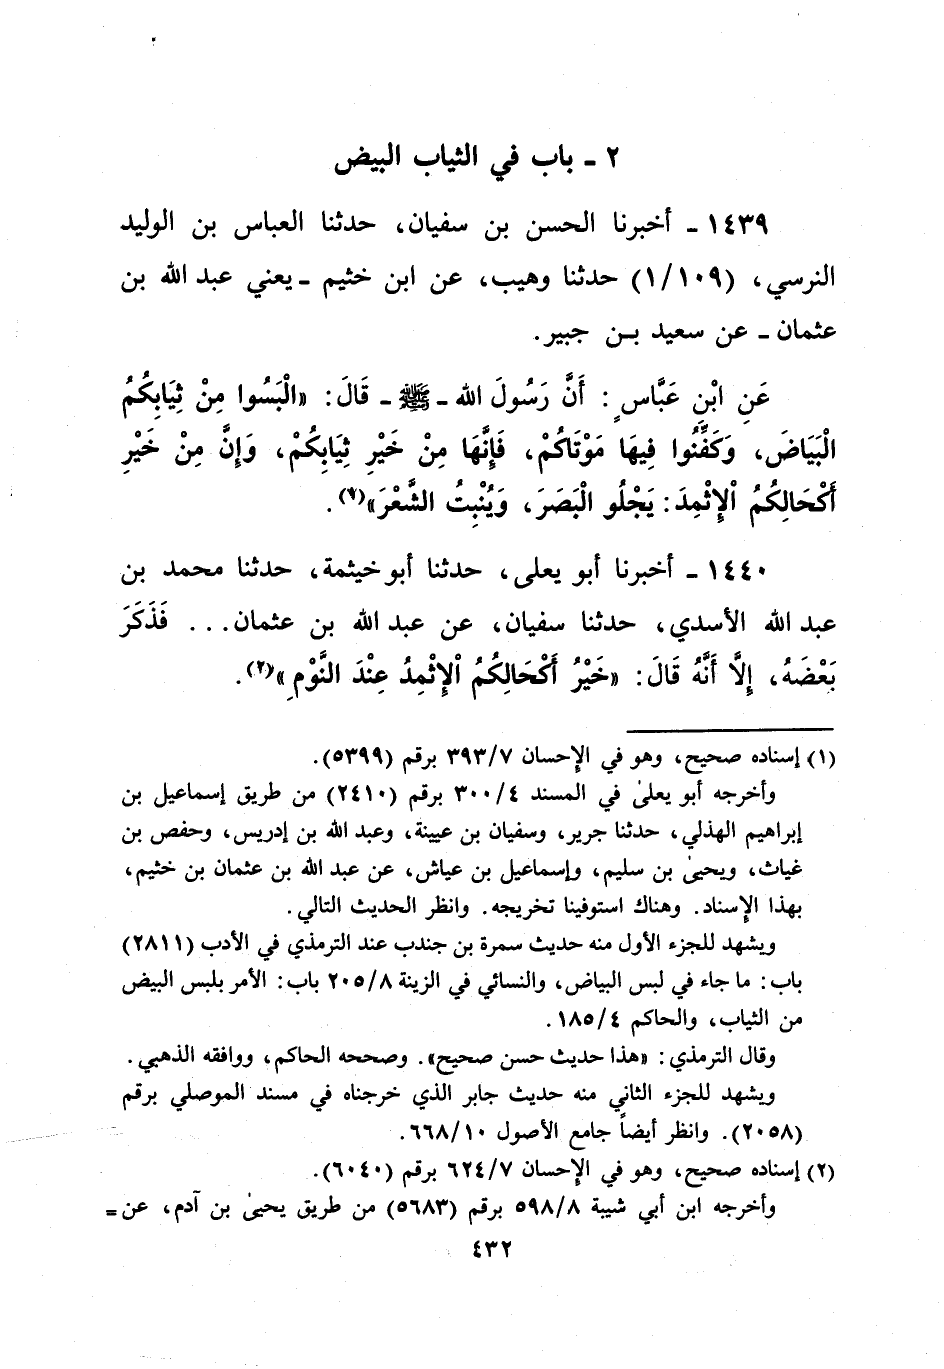 ٢ ـ باب في الثياب البيض
١٤٣٩ ـ أخبرنا الحسن بن سفيان، حدثنا العباس بن الوليد
النرسي، (١/١٠٩) حدثنا وهيب، عن ابن خثيم ـ يعني عبد الله بن
عثمان ـ عن سعيد بن جبير.
عَنِ ابْنِ عَبَّاسٍ: أَنَّ رَسُولَ الله ـ ﷺ ـ قَالَ: «الْبَسُوا مِنْ ثِيَابِكُمُ
الْبَيَاضَ، وَكَفِّنُوا فِيهَا مَوْتَاكُمْ، فَإِنَّهَا مِنْ خَيْرِ ثِيَابِكُمْ، وَإِنَّ مِنْ خَيْرِ
أَكْحَالِكُمُ الإِثْمِدَ: يَجْلُو الْبَصَرَ، وَيُنْبِتُ الشَّعْرَ»(١).
١٤٤٠ ـ أخبرنا أبو يعلى، حدثنا أبو خيثمة، حدثنا محمد بن
عبد الله الأسدي، حدثنا سفيان، عن عبد الله بن عثمان... فَذَكَرَ
بَعْضَهُ، إِلَّا أَنَّهُ قَالَ: «خَيْرُ أَكْحَالِكُمُ الإِثْمِدُ عِنْدَ النَّوْمِ»(٢).
(١) إسناده صحيح، وهو في الإحسان ٣٩٣/٧ برقم (٥٣٩٩).
وأخرجه أبو يعلىٰ في المسند ٣٠٠/٤ برقم (٢٤١٠) من طريق إسماعيل بن
إبراهيم الهذلي، حدثنا جرير، وسفيان بن عيينة، وعبد الله بن إدريس، وحفص بن
غياث، ويحيىٰ بن سليم، وإسماعيل بن عياش، عن عبد الله بن عثمان بن خثيم،
بهذا الإسناد. وهناك استوفينا تخريجه. وانظر الحديث التالي.
ويشهد للجزء الأول منه حديث سمرة بن جندب عند الترمذي في الأدب (٢٨١١)
باب: ما جاء في لبس البياض، والنسائي في الزينة ٢٠٥/٨ باب: الأمر بلبس البيض
من الثياب، والحاكم ١٨٥/٤.
وقال الترمذي: «هذا حديث حسن صحيح». وصححه الحاكم، ووافقه الذهبي.
ويشهد للجزء الثاني منه حديث جابر الذي خرجناه في مسند الموصلي برقم
(٢٠٥٨). وانظر أيضاً جامع الأصول ٦٦٨/١٠.
(٢) إسناده صحيح، وهو في الإحسان ٦٢٤/٧ برقم (٦٠٤٠).
وأخرجه ابن أبي شيبة ٥٩٨/٨ برقم (٥٦٨٣) من طريق يحيىٰ بن آدم، عن =
٤٣٢